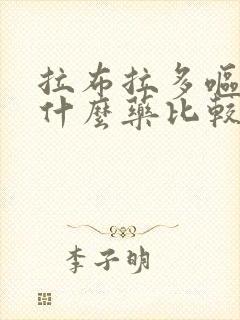 拉布拉多嘔
什麼藥比較
李子明